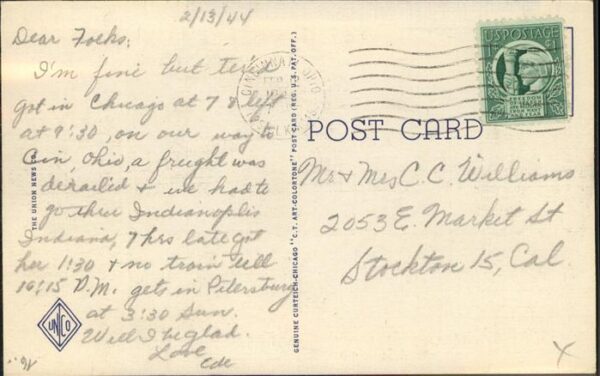 2/13/44
Dear Folks;
I'm fine but ter'd
got in Chicago at 7 & left
at 9:30, on our way to
Cin, Ohio, a frught was
derailed & we had to
go thru Indianoplis
Indiana, 7 hrs late got
her 1:30 & no train till
10:15 P.M. gets in Petersburg
at 3:30 Sun.
Will I be glad.
Love
THE UNION NEWS CO
UNCO
GENUINE CURTEICH-CHICAGO "C.T. ART-COLORTONE" POST CARD (REG. U.S. PAT. OFF.)
CINCINNATI, OHIO
US POSTAGE
1¢
POST CARD
Mr & Mrs C. C. Williams
2053 E. Market St
Stockton 15, Cal.
X